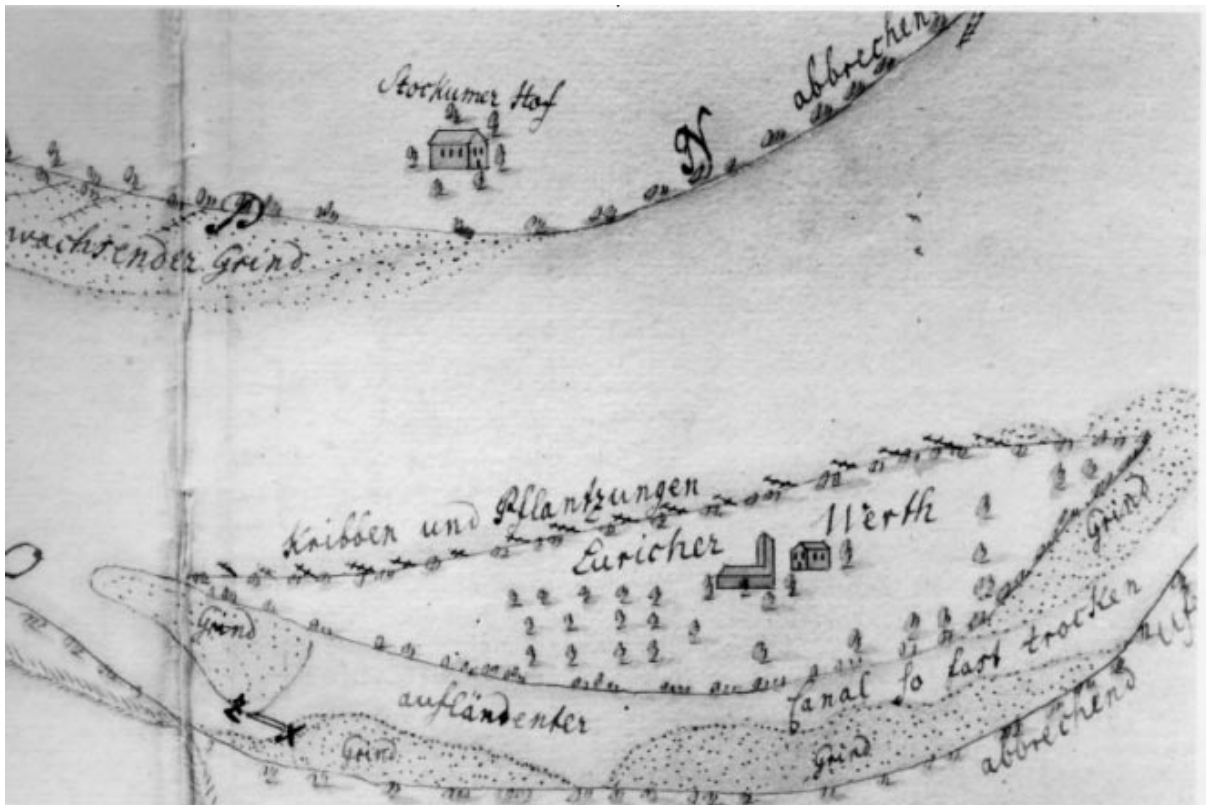 Stockumer Hof
abbrechen
N
wachsender Grind
Kribben und Pflantzungen
Euricher Werth
Grind
Grind
aufländenter Canal so fast trocken
Grind
Grind
abbrechend Uf